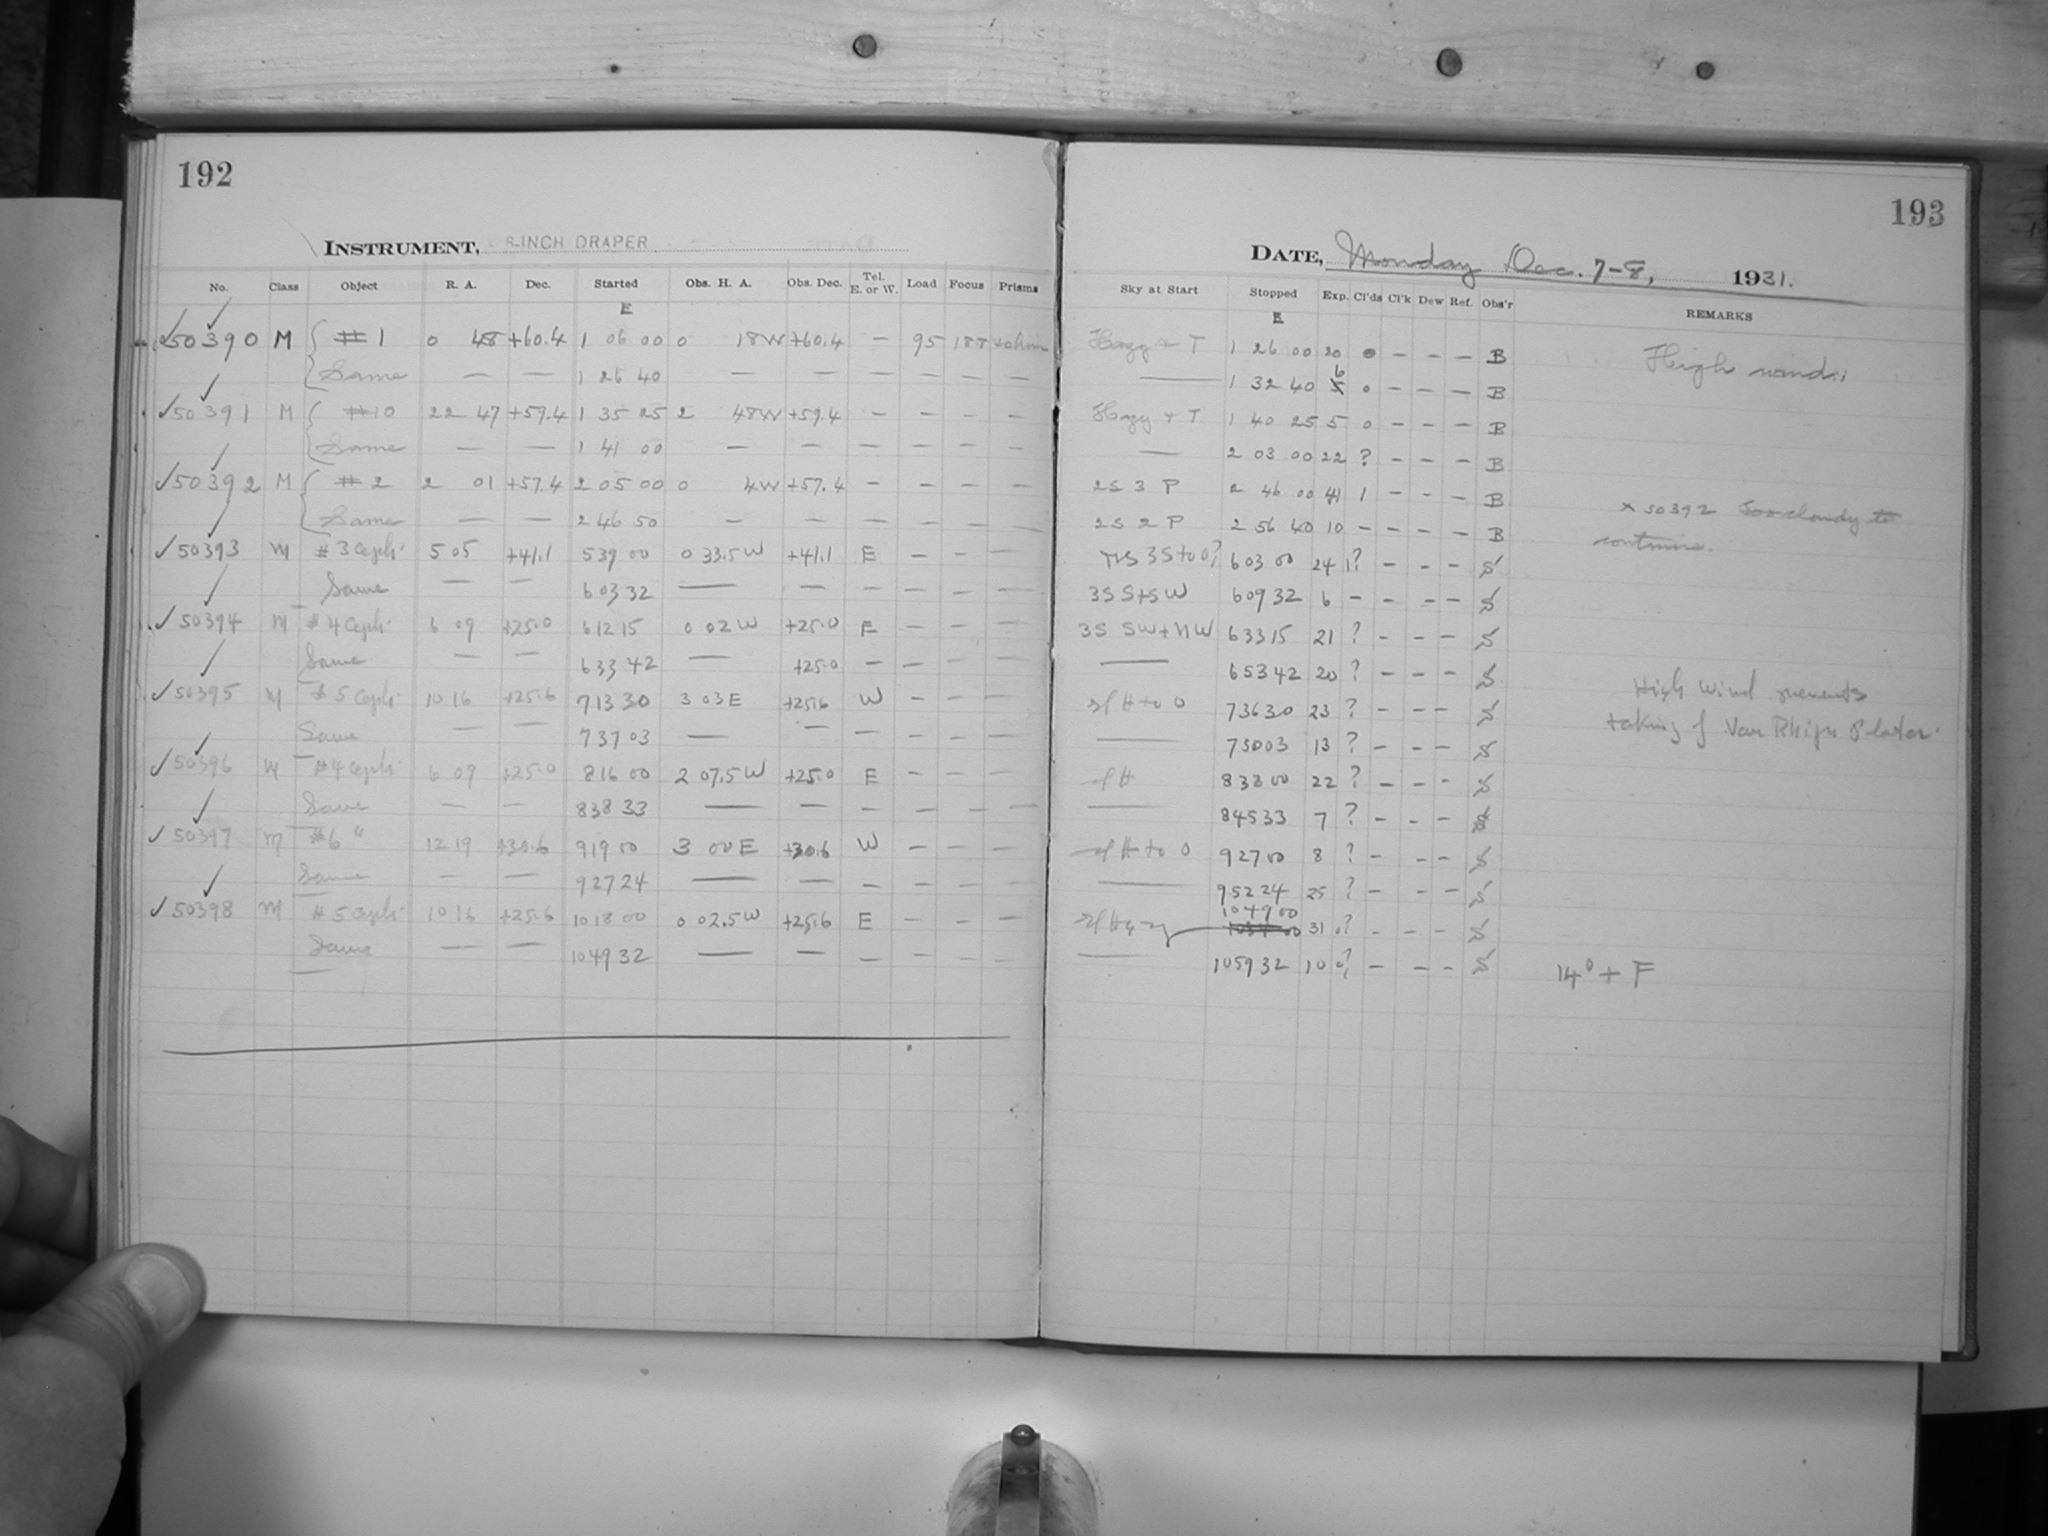 192
INSTRUMENT, 8-INCH DRAPER
No. Class Object R. A. Dec. Started Obs. H. A. Obs. Dec. Tel. E. or W. Load Focus Prisms
E
50390 M # 1 0 48 +60.4 1 06 00 0 18W +60.4 — 95 188
Same — — 1 26 40 — — — — — —
50391 M #10 22 47 +59.4 1 35 25 2 48W +59.4 — — — —
Same — — 1 41 00 — — — — — —
50392 M # 2 2 01 +57.4 2 05 00 0 4W +57.4 — — — —
Same — — 2 46 50 — — — — — —
50393 M # 3 Ceph. 5 05 +41.1 5 39 00 0 33.5W +41.1 E — — —
Same — — 6 03 32 — — — — — —
50394 M # 4 Ceph. 6 09 +25.0 6 12 15 0 02W +25.0 E — — —
Same — — 6 33 42 — +25.0 — — — —
50395 M # 5 Ceph. 10 16 +25.6 7 13 30 3 03E +25.6 W — — —
Same — — 7 37 03 — — — — — —
50396 M #4 Ceph. 6 09 +25.0 8 16 00 2 07.5W +25.0 E — — —
Same — — 8 38 33 — — — — — —
50397 M #6 " 12 19 +30.6 9 19 00 3 00E +30.6 W — — —
Same — — 9 27 24 — — — — — —
50398 M # 5 Ceph. 10 16 +25.6 10 18 00 0 02.5W +25.6 E — — —
Same — — 10 49 32 — — — — — —
193
DATE, Monday Dec. 7-8, 1931.
Sky at Start Stopped Exp. Cl'ds Cl'k Dew Ref. Obs'r REMARKS
E
Hazy + T 1 26 00 20 0 — — — B High wind.
— 1 32 40 6 0 — — — B
Hazy + T 1 40 25 5 0 — — — B
— 2 03 00 22 ? — — — B
2S 3 P 2 46 00 41 1 — — — B x 50392 Too cloudy to
2S 2 P 2 56 40 10 — — — — B continue.
3S to 0? 6 03 00 24 1? — — — S
3S S+SW 6 09 32 6 — — — — S
3S SW+NW 6 33 15 21 ? — — — S
— 6 53 42 20 ? — — — S High wind prevents
H to 0 7 36 30 23 ? — — — S taking of Van Rhijn Plates.
— 7 50 03 13 ? — — — S
H 8 38 00 22 ? — — — S
— 8 45 33 7 ? — — — S
H to 0 9 27 00 8 ? — — — S
— 9 52 24 25 ? — — — S
10 49 00 31 0? — — — S
— 10 59 32 10 0? — — — S 14° + F